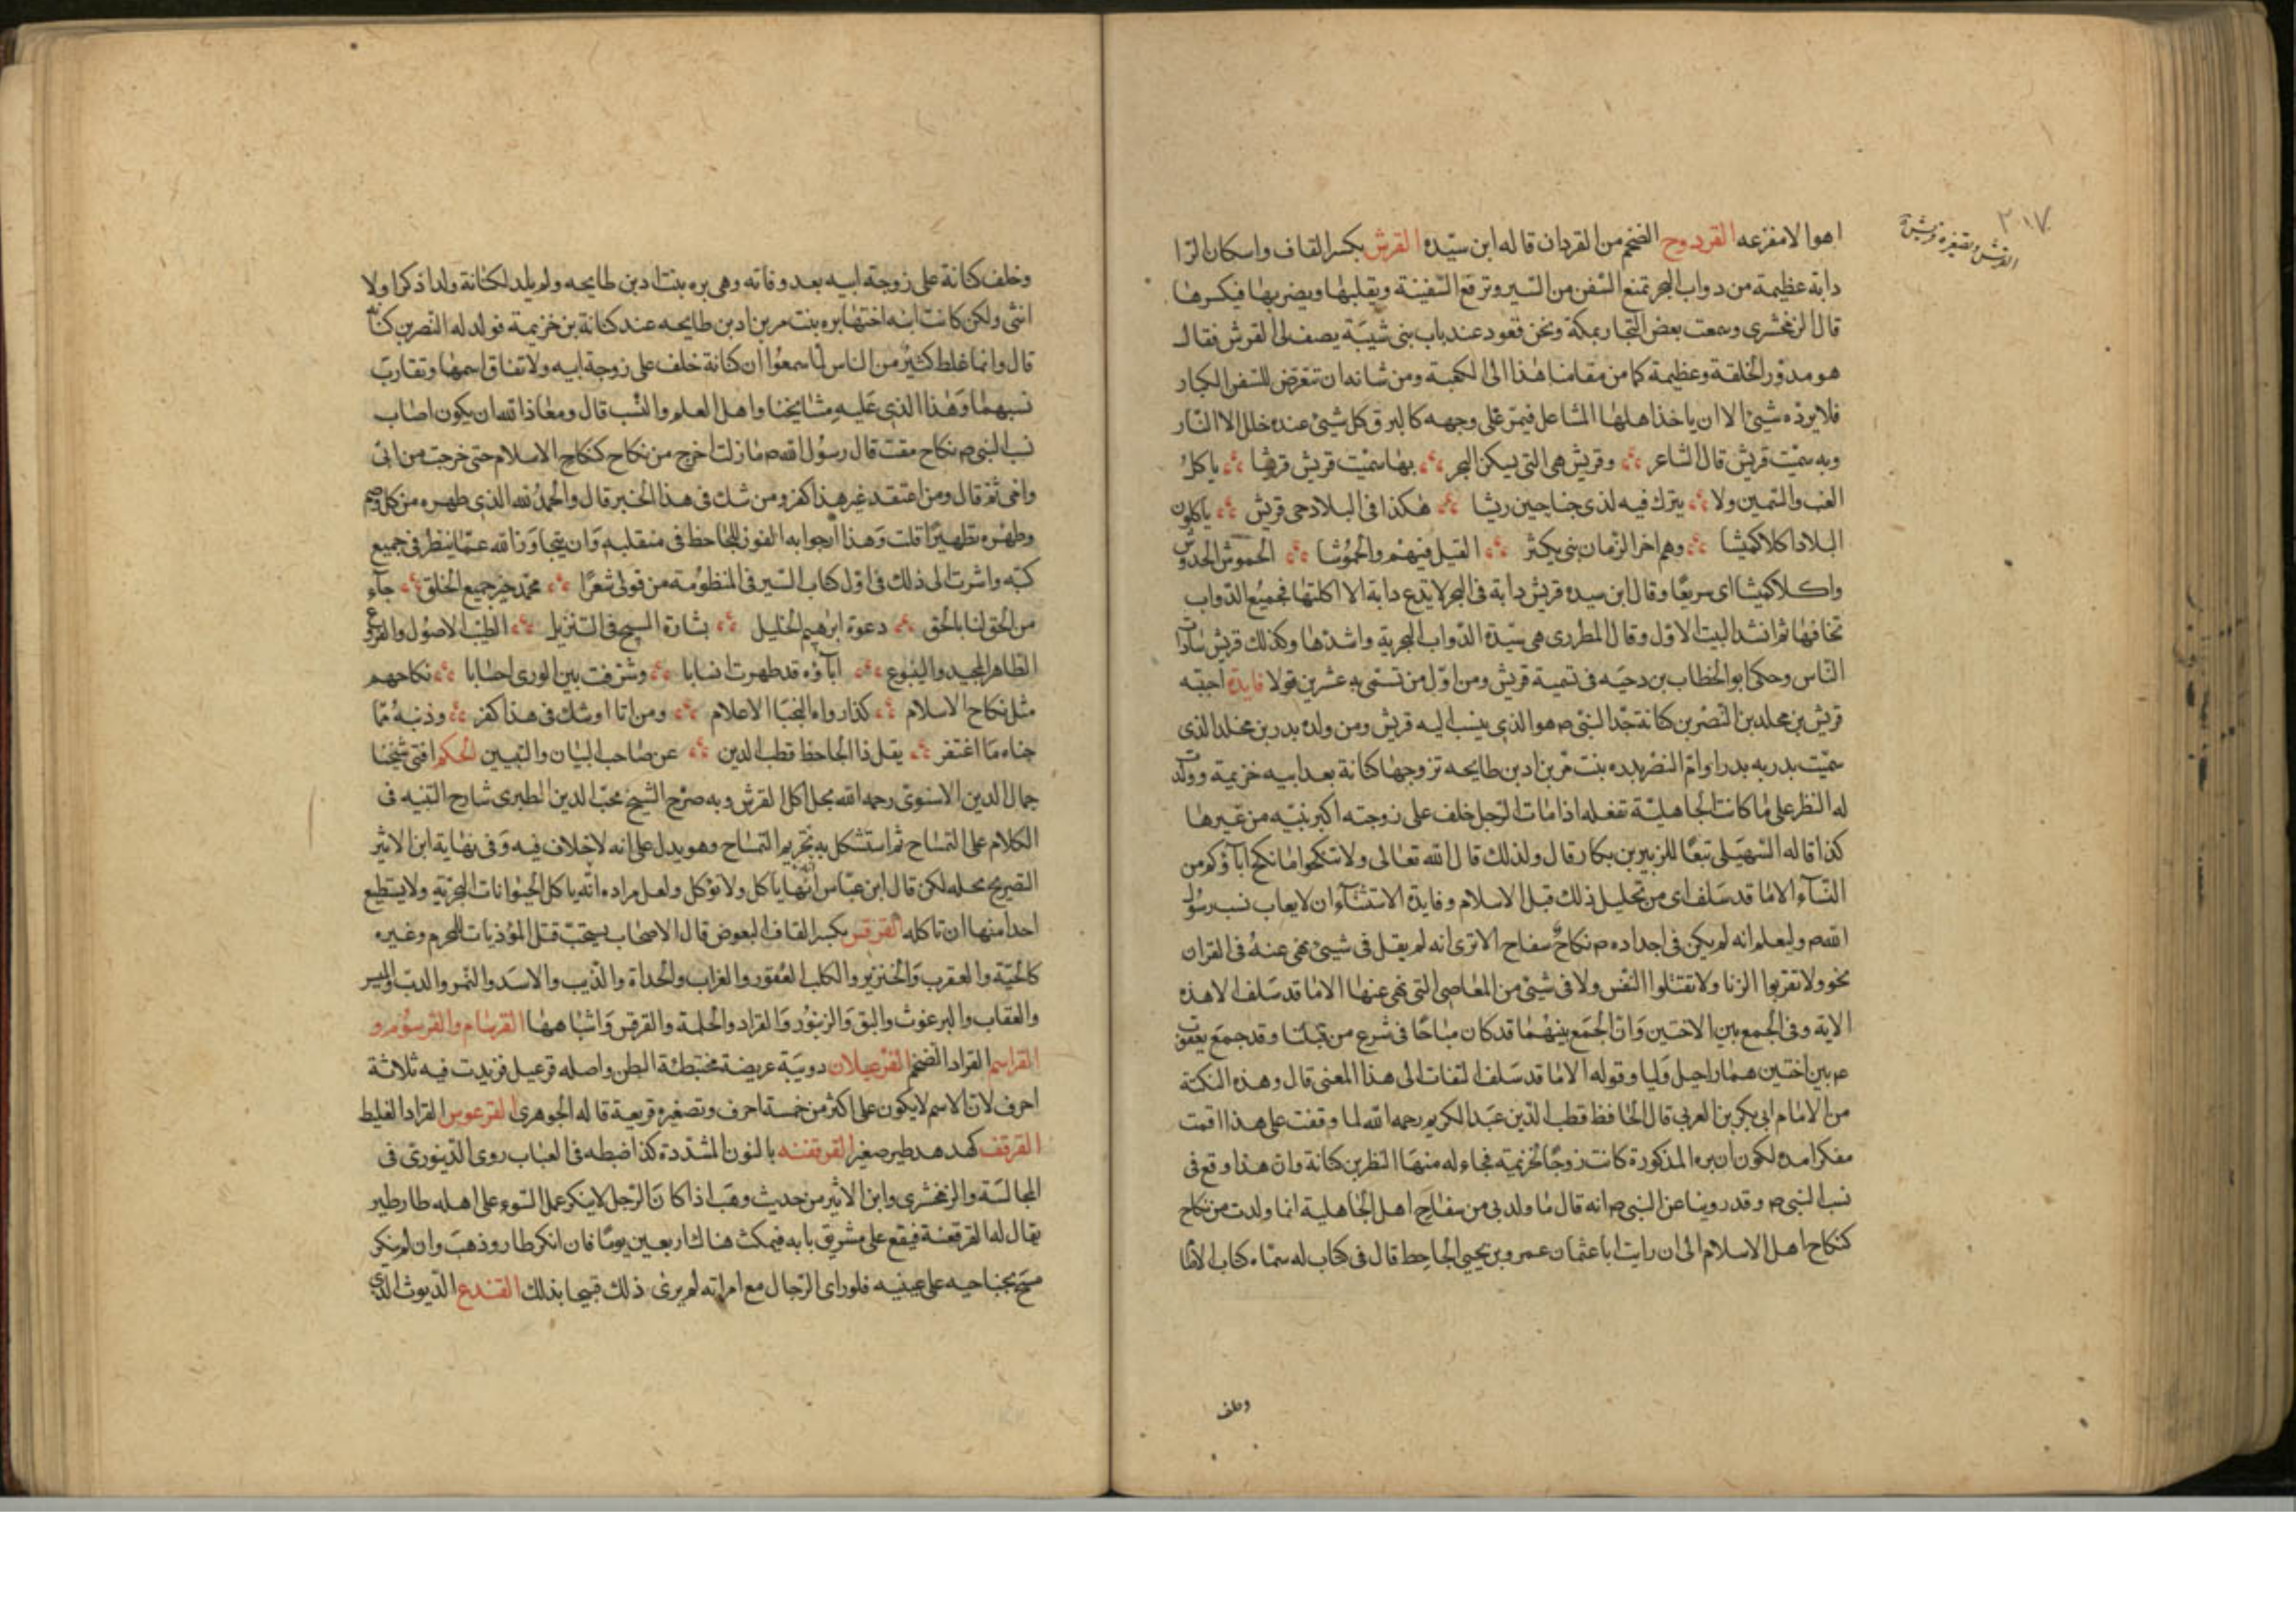 ٢٠١٧
القرش وتصغيره قريش
اهوالا مفزعه القردوح الضخم من القردان قاله ابن سيّده القرش بكسر القاف واسكان الرّا
دابة عظيمة من دواب البحر تمنع السّفن من السّير وترفع السّفينة ويقلبها ويضربها فيكسرها
قال الزمخشرى وسمعت بعض التجار بمكة ونحن قعود عند باب بنى شيبَة يصف لى القرش فقال
هو مدوّر الخلقة وعظيمة كما من مقامنا هذا الى الكعبة ومن شانه ان تتعرّض للسّفن الكبار
فلا يردّه شيئ الا ان ياخذ اهلها المشاعل فيمرّ على وجهه كالبرق كل شيئ عنده خلل الا النّار
وبه سمّيت قريش قال الشاعر وقريش هى التى يسكن البحر بها سمّيت قريش قرشا ياكل
الغب والسّمين ولا يترك فيه لذى جناحين ريشا هكذا فى البلاد حى قريش ياكلون
البلاد اكلا كميشا وهم اخر الزّمان بنى يكثر القيل فيهم والخموُشا الخموش الخدوش
واكلا كميشا اى سريعًا وقال ابن سيده قريش دابة فى البحر لا يدع دابة الا اكلتها فجميعُ الدّواب
تخافها ثم انشد البيت الاوّل وقال المطرزى هى سيّدة الدّواب البحرية واشدّها وكذلك قريش سادات
النّاس وحكى ابو الخطاب بن دحيَه فى تسمية قريش ومن اوّل من تسمّى به عشرين قولا فايدة اجنبيّه
قريش بن مخلد بن النّضر بن كنانة جدّ النبىّ م هو الذى ينسب اليه قريش ومن ولده بدر بن مخلد الذى
سمّيت بدر به بدرا وامّ النضر بره بنت مّر بن اد بن طابخه تزوجها كنانة بعد ابيه خزيمة وولدت
له النظر على ما كانت الجاهليّة تفعله اذا مات الرّجل خلف على زوجته اكبر بنيه من غيرها
كذا قاله السّهيلى تبعًا للزبير بن بكار قال ولذلك قال الله تعالى ولا تنكحوا ما نكح اباؤكم من
النّسآء الا ما قد سَلف اى من تحليل ذلك قبل الاسلام وفايدة الاستثنآء ان لا يعاب نسب رسُول
الله م وليعلم انه لم يكن فى اجداده م نكاح سفاح الا ترى انه لم يقل فى شيئ نهى عنهُ فى القران
نحو ولا تقربوا الزنا ولا تقتلوا النّفس ولا فى شيئ من المعاصى التى نهى عنها الا ما قد سَلف الا هذه
الاية وفى الجمع بين الاختين وَانّ الجمَع بينهما قد كان مباحًا فى شرع من قبلنا وقد جمَع يعقوب
ع م بين اختين هما راحيل وَليا وقوله الا ما قد سَلف التفات الى هذا المعنى قال وهذه النكتة
من الامام ابى بكر بن العربى قال الحافظ قطب الدّين عبَد الكريم رحمه الله لما وقفت على هذا اقمت
مفكرا مدة لكون ان بره المذكورة كانت زوجًا لخزيمة فجاء له منها النظر بن كنانة وان هذا وقع فى
نسب النبى م وقد روينا عن النبى م انه قال ما ولدنى من سفاح اهل الجاهلية انما ولدت من نكاح
كنكاح اهل الاسلام الى ان رايت ابا عثمان عمرو بن يحيى الجاحظ قال فى كتاب له سمّاه كتاب الاصنا
وخلف
وخلف كنانة على زوجة ابيه بعد وفاته وهى بره بنت اد بن طابخه ولم يلد لكنانة ولدا ذكرا ولا
انثى ولكن كانت ابنه اختها بره بنت مر بن اد بن طابخه عند كنانة بن خزيمة فولد له النّضر بن كنانة
قال وانما غلط كثيرٌ من الناس لما سمعوُا ان كنانة خلف على زوجة ابيه ولاتفاق اسمها وتقارب
نسبهما وَهذا الذى عَليه مشايخنا واهل العلم والنّسب قال ومعاذ الله ان يكون اصاب
نسب النبى م نكاح مقت قال رسُول الله م ما زلت اخرج من نكاح كنكاح الاسلام حتى خرجت من ابى
وامى ثم قال ومن اعتقد غير هذا كفر ومن شك فى هذا الخبر قال والحمدُ لله الذى طهره من كل وصم
وطهّره تطهيرًا قلت وَهذا ارجو ابه الفوز للجاحظ فى منقلبه وَان يتجاوَز الله عنه فيما ينظر فى جميع
كتبه واشرت الى ذلك فى اوّل كتاب السّير فى المنظومة من قولى شعرًا محمّد خير جميع الخلق جآء
من الحق لنا بالحق دعوة ابرهيم الخليل بشارة المسيح فى التنزيل الطيّب الاصُول والفروع
الطّاهر المجيد والينبوع اباؤه قد طهرت انسابا وشرّفت بين الورى احسابا نكاحهم
مثل نكاح الاسلام كذا رواه النجبا الاعلام ومن ابا او شك فى هذا كفر وذنبُهُ مّا
جناه مَا اغتفر يقل ذا الجاحظ قطب الدين عن صاحب البيان والتبيين الحكم افتى شيخنا
جمال الدين الاسنوى رحمه الله بحل اكل القرش وبه صرّح الشيخ محبّ الدين الطبرى شارح التنبيه فى
الكلام على التمساح ثم استشكل به بتحريم التمساح وهو يدل على انه لا خلاف فيه وَفى نهاية ابن الاثير
التصريح بحله لكن قال ابن عبّاس انّها ياكل ولا تؤكل ولعل مراده انّه ياكل الحيوانات البحريّة ولا يستطيع
احد منها ان تاكله القرقس بكسر القاف البعوض قال الاصحاب يستحبّ قتل المؤذيات للمحرم وغيره
كالحيّة والعقرب وَالخنزير والكلب العقور والغراب والحداة والذّيب والاسَد والنّمر والدب والنسر
والعقاب والبرغوث والبق وَالزنبوُر وَالقراد والحلمة والقرقس وَاشباهها القرشام والقرشوُم و
القراشم القراد الضخم القرعبلان دويبّة عريضة مختبطئة البطن واصله قرعبل فزيدت فيه ثلاثة
احرف لان الاسم لا يكون على اكثر من خمسة احرف وتصغيره قريعبة قاله الجوهرى القرعوس القراد الغليظ
القرقف كهدهد طير صغير القرقفنه بالنون المشدّدة كذا ضبطه فى العباب روى الدّينورى فى
المجالسَة والزمخشرى وابن الاثير من حديث وهَب اذا كانَ الرّجل لا ينكر عمل السّوء على اهله طار طير
يقال له القرقفنة فيقع على مشريق بابه فيمكث هناك اربعين يومًا فان انكر طار وذهَب وان لم ينكر
مسَح بجناحيه على عينيه فلو راى الرّجال مع امراته لم يرى ذلك قبيحا بذلك القندع الدّيوث الذى